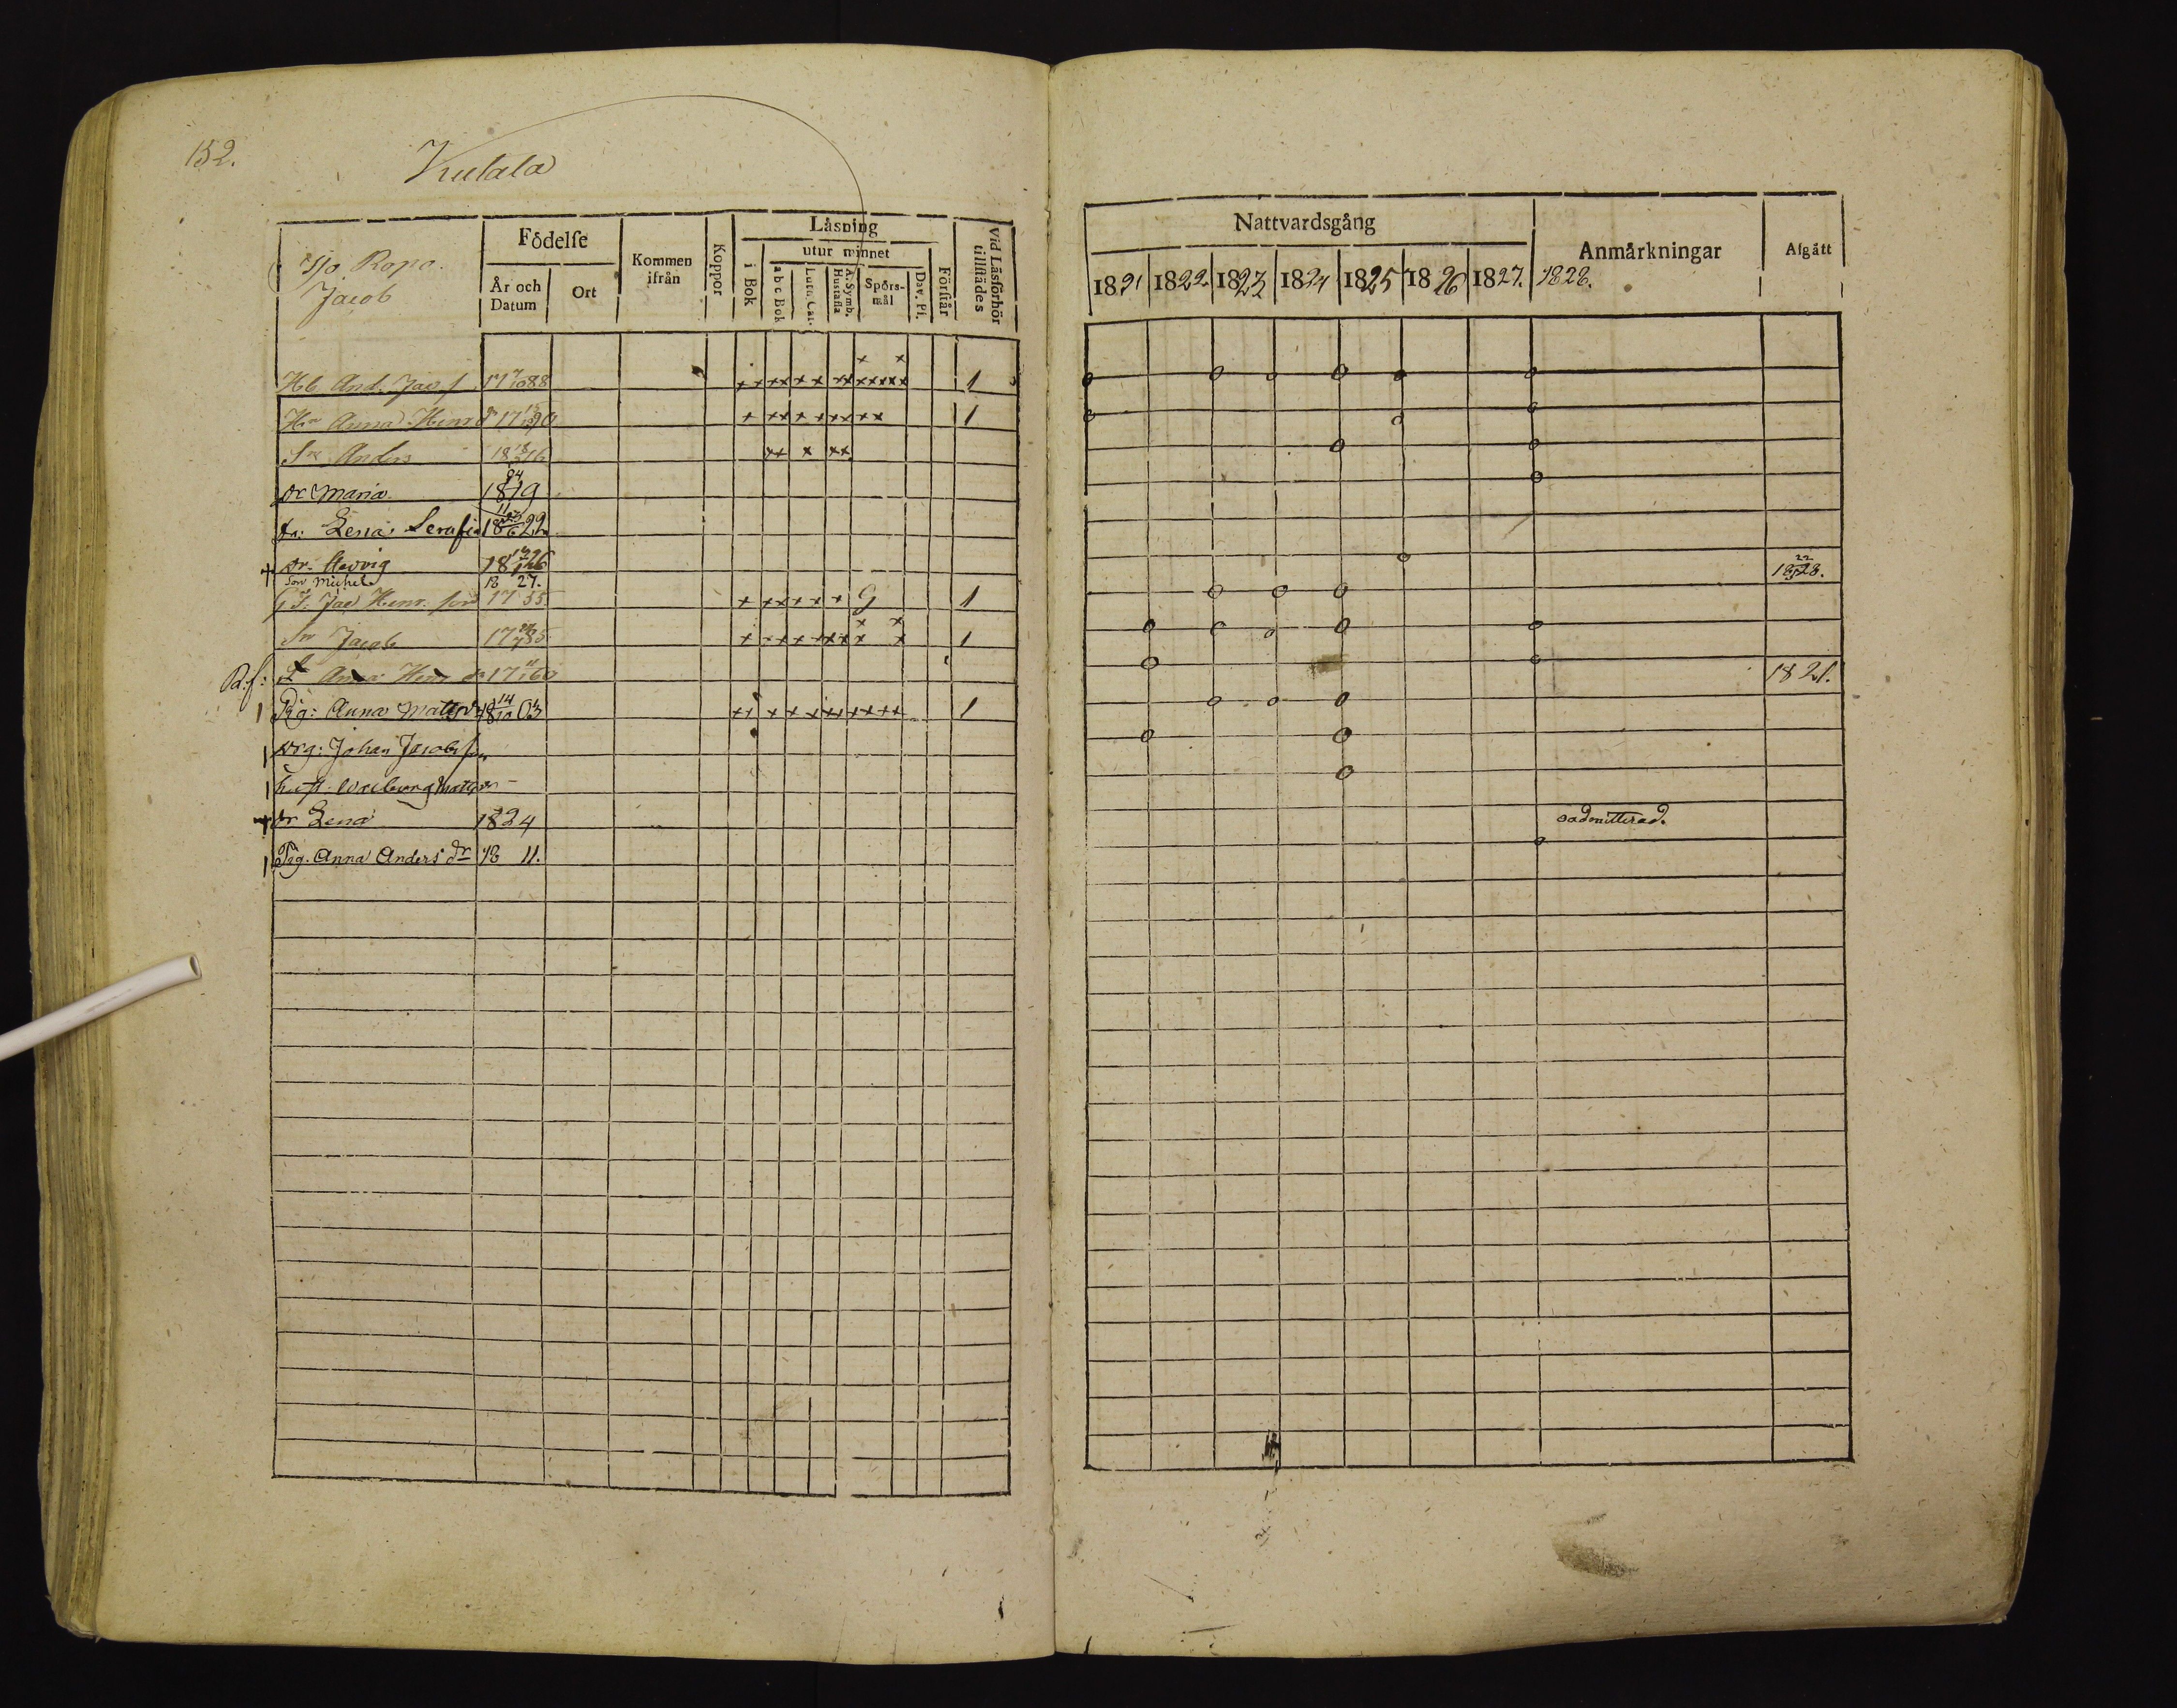 152.
Kulala
Ropo
Jacob
Födelse
År och Datum
Ort
Kommen ifrån
Koppor
Läsning
i Bok
utur minnet
a b c Bok
Luth. Cat.
A. Symb. Hustafla
Spörsmål
Dav. Ps.
Förstår
Vid Läsförhör tillstädes
Hb And. Jac s. 17 88 1
Hu Anna Henr dr 17 90 1
Sn Anders 18 16
dr Maria 1819
dr: Lena Serafia 18 22
+ dr. Hedvig 18 26
Son Michel 18 27.
Jac Henr. son 17 55 1
Sn Jacob 17 85 1
Anna Henr dr 17 60
Pig: Anna Matsdr 18 14/10 03 1
drg: Johan Jacobs son
hust. Walborg Matsdr
+ dr Lena 1824
Pig. Anna Anders dr 18 11.
Nattvardsgång
1821 1822 1823 1824 1825 1826 1827. 1828.
Anmärkningar
Afgått
1828.
1821.
oadmitterad.